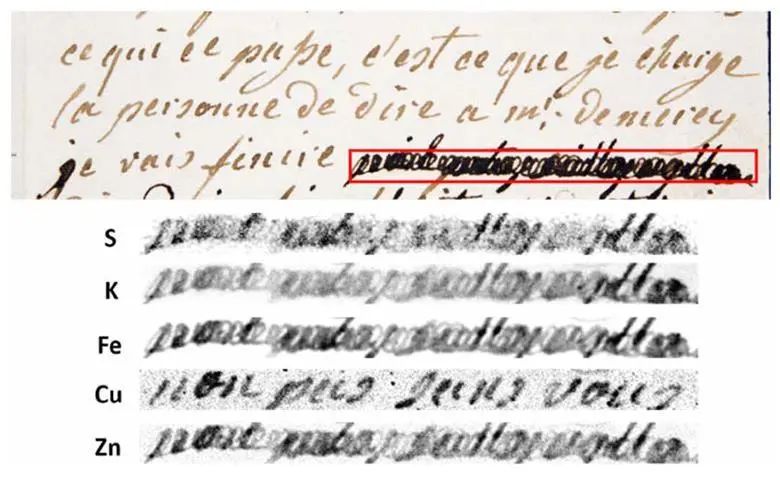 ce qui ce passe, c'est ce que je charge
la personne de dire a mr. demercy
je vais finire
S
K
Fe
Cu non pas sans vous
Zn